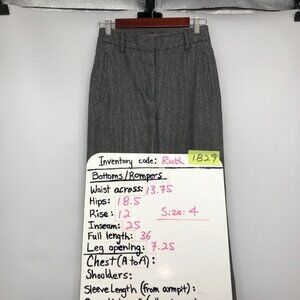 Inventory code: Ruth 1829
Bottoms/Rompers
Waist across: 13.75
Hips: 18.5
Rise: 12 Size: 4
Inseam: 25
Full length: 36
Leg opening: 7.25
Chest (A to A):
Shoulders:
Sleeve Length (from armpit):